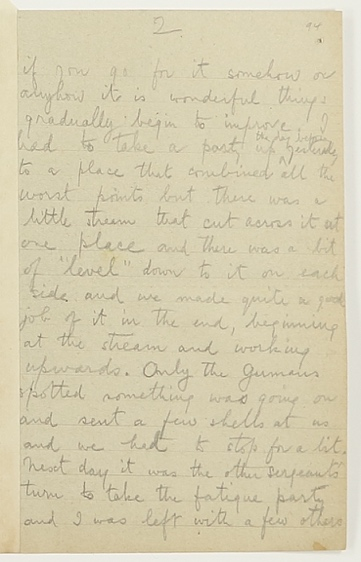 2
94
if you go for it somehow or
anyhow it is wonderful things
gradually begin to improve. I
had to take a party up the day before yesterday
to a place that combined all the
worst points but there was a
little stream that cut across it at
one place and there was a bit
of "level" down to it on each
side and we made quite a good
job of it in the end, beginning
at the stream and working
upwards. Only the Germans
spotted something was going on
and sent a few shells at us
and we had to stop for a bit.
Next day it was the other sergeant's
turn to take the fatigue party
and I was left with a few others